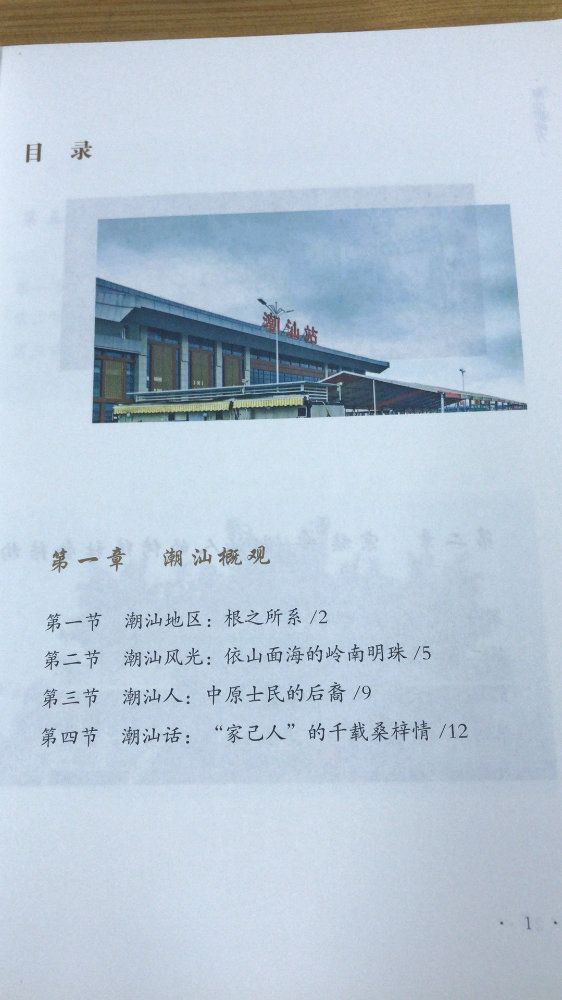 目 录
潮汕站
第一章 潮汕概观
第一节 潮汕地区：根之所系 /2
第二节 潮汕风光：依山面海的岭南明珠 /5
第三节 潮汕人：中原士民的后裔 /9
第四节 潮汕话：“家己人”的千载桑梓情 /12
· 1 ·